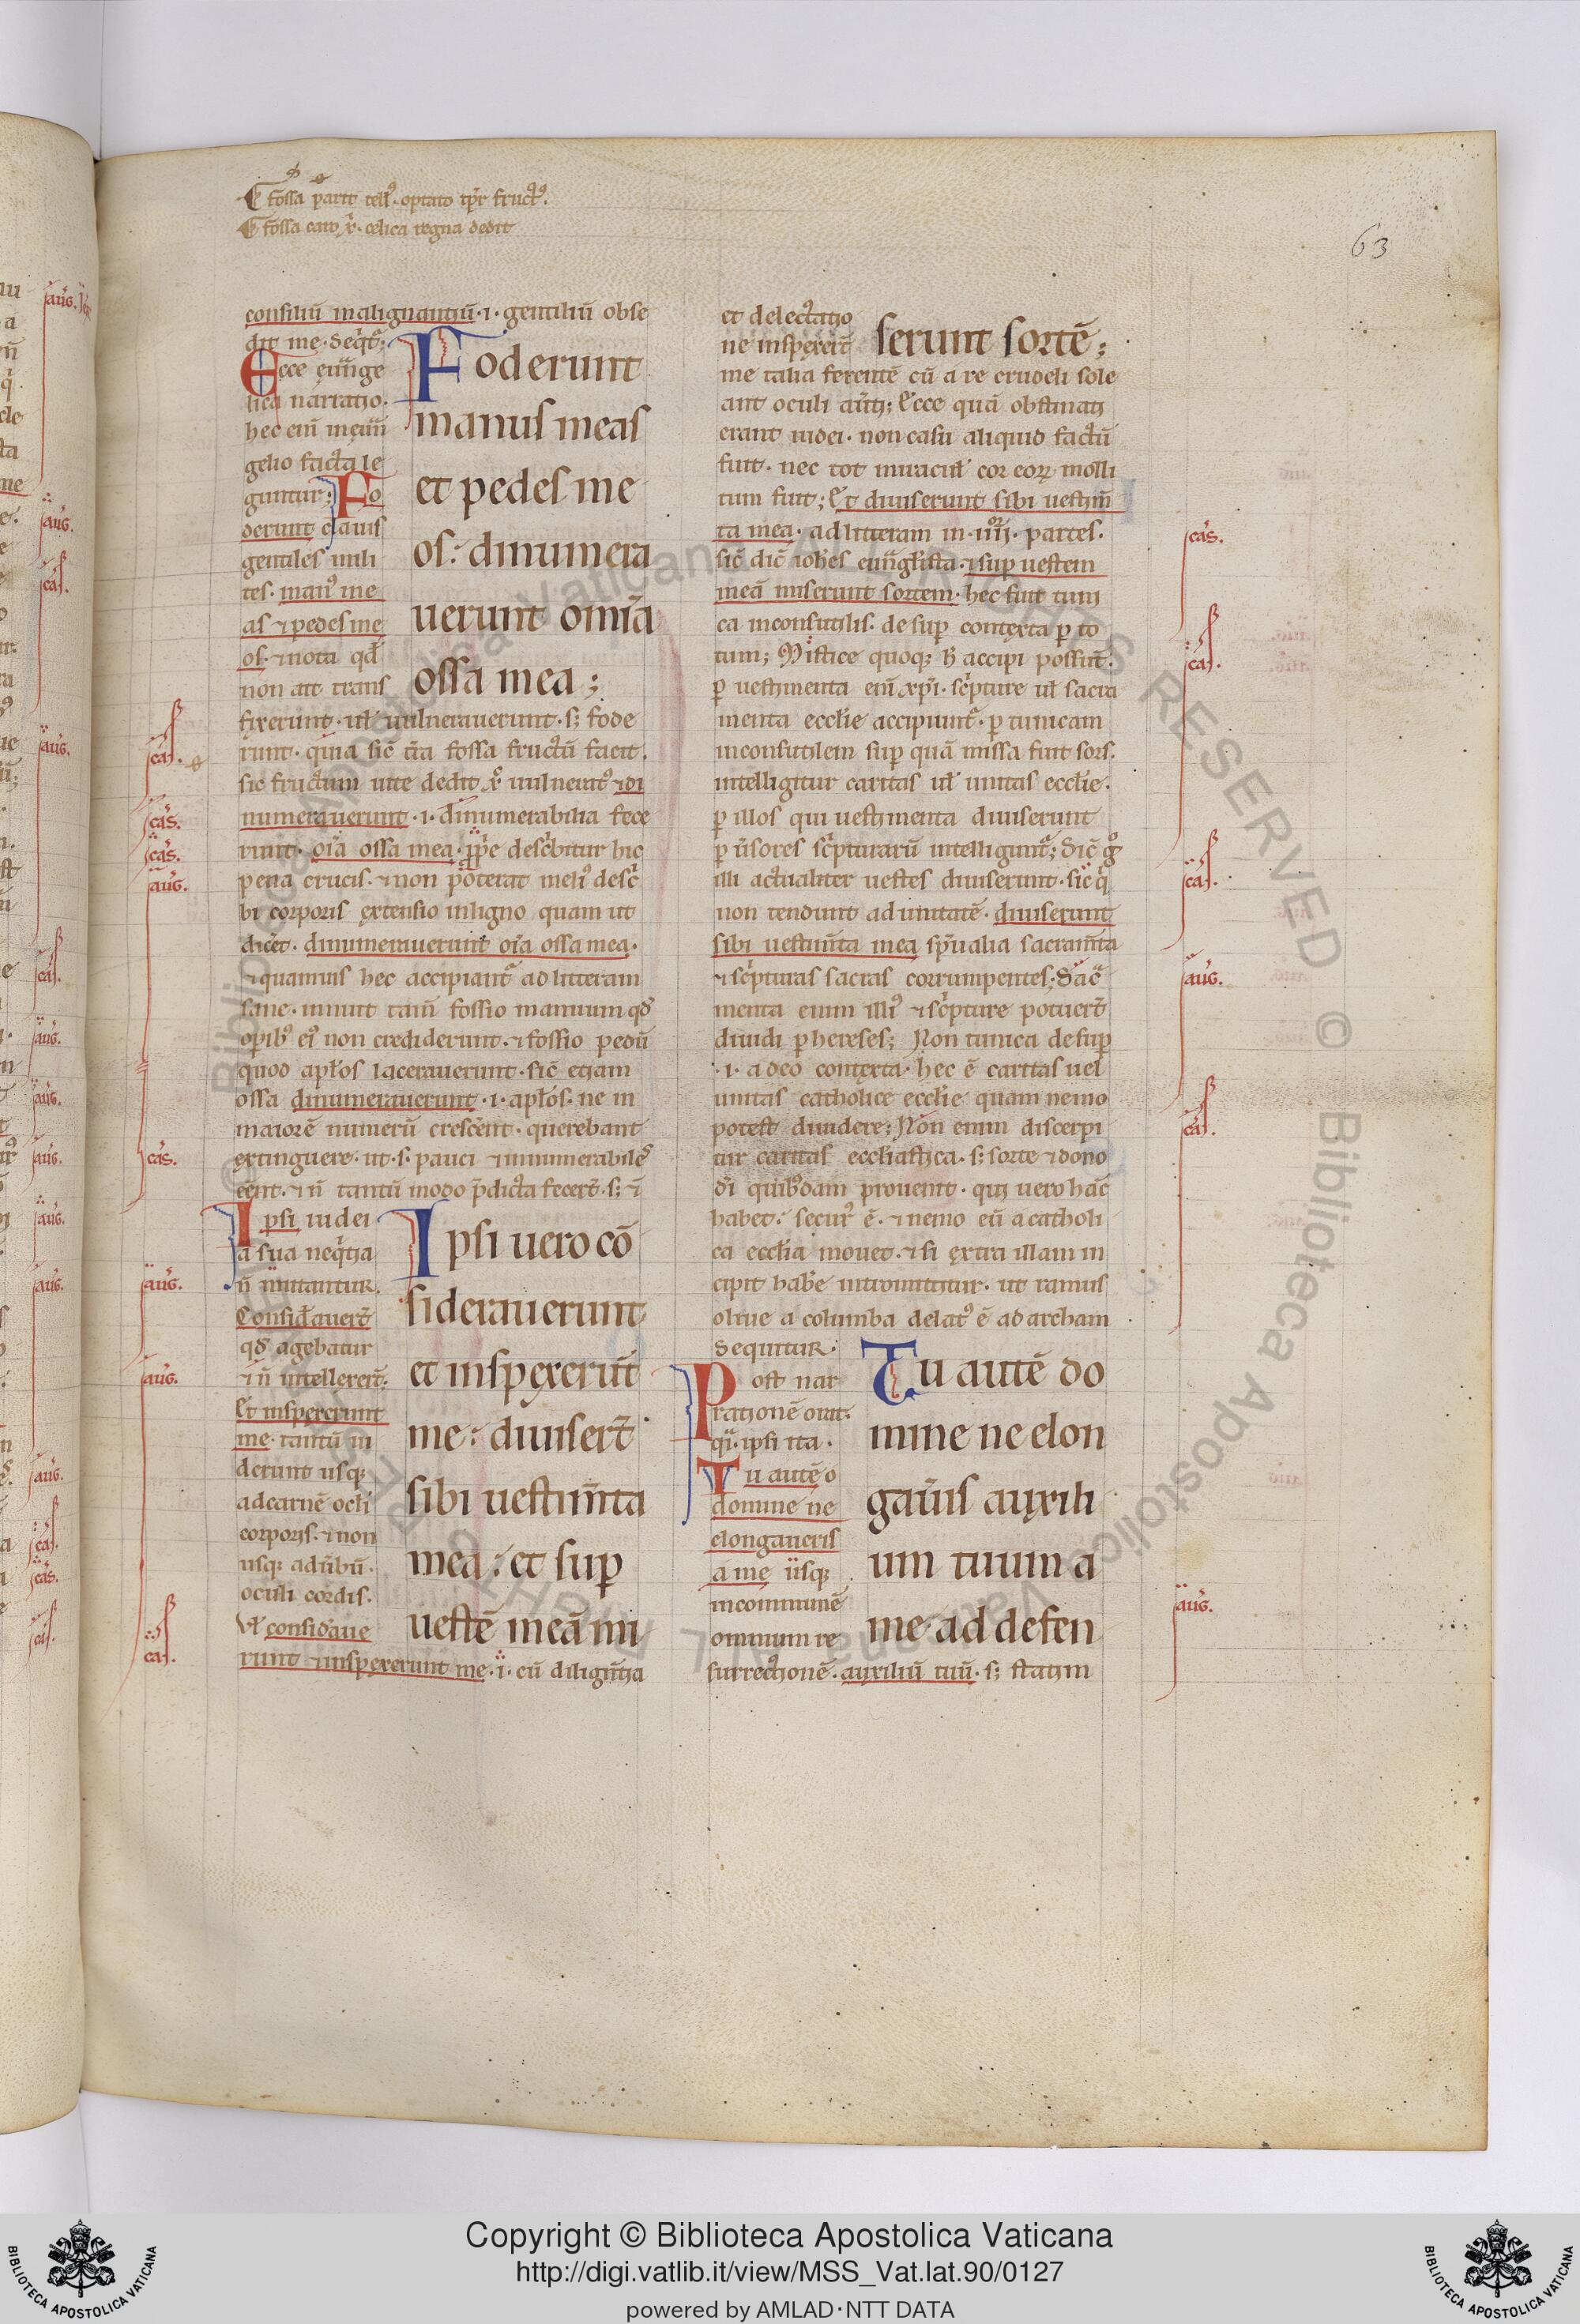 fossa parit tell᷒. optato tp̄r fruct᷒.
fossa caro x̄. celica regna dedit
63
consiliū malignantiū·i·gentiliū obse
dit me·Seq̄t᷑;
Ecce euu̅ge
lica narratio.
hec eni̅ ineuu̅
gelio facta le
guntur; Fo
derunt clauis
gentiles mili
tes. man᷒ me
as ⁊ pedes me
os. ⁊ nota qđ
non ait trans
Foderunt
manus meas
et pedes me
os: dinumera
uerunt om̅ia
ossa mea;
fixerunt·ul̅ uulnerauerunt·s; fode
runt·quia sic̅ t̅ra fossa fructū facit.
sic fructum uite dedit x̄ uulnerat᷒ ⁊ di
numerauerunt·i·dinumerabilia fece
runt. oi̅a ossa mea. p̅p̅e desc̅bitur hic
pena crucis. ⁊ non poterat meli᷒ desc̅
bi corporis extensio in ligno quam ut
dicet. dinumerauerunt oi̅a ossa mea.
⁊ quamuis hec accipiant᷑ ad litteram
sane·innuit tam̅ fossio manuum qđ
opib᷒ ei᷒ non crediderunt. ⁊ fossio pedū
quod apl̅os lacerauerunt·sic̅ etiam
ossa dinumerauerunt·i·apl̅os. ne in
maiorē numerū cresce̅nt·querebant
extinguere·ut·s·pauci ⁊ innumerabiles
eēnt. ⁊ n̅ tantū modo p̅dicta fecert̅·s; ⁊
Ipsi iudei
a sua neq̄tia
n̅ mutantur.
Consid̅auert̅
qđ agebatur
⁊ n̅ intellexert̅.
Et inspexerunt
me·tantū ui
derunt usq;
ad carnē ocl̅i
corporis. ⁊ non
usq; ad ūbū.
oculi cordis.
Vl̅ consid̅aue
Ipsi uero cō
siderauerunt
et inspexerūt
me: diuisert̅
sibi uestim̅ta
mea: et sup̱
uestē meā mi
runt ⁊ inspexerunt me·i·cū diligen̅tia
et delectatio
ne inspexert̅
serunt sortē;
me talia ferentē cū a re crudeli sole
ant oculi au̅ti; Ecce quā obstinati
erant iudei·non casu aliquid factū
fuit·nec tot miracul̅ cor eoꝝ molli
tum fuit; Et diuiserunt sibi uestim̅
ta mea·ad litteram in·iiii·partes.
sic̅ dic̅ ioh̅es euu̅gl̅ista. ⁊ sup̱ uestem
meā miserunt sortem·hec fuit tuni
ca inconsutilis·de sup̱ contexta p̱ to
tum; Mistice quoq; h̅ accipi possūt.
p̱ uestimenta eni̅ xp̅i·sc̅pture ul̅ sacra
menta eccl̅ie accipiunt᷑·p̱ tunicam
inconsutilem sup̱ quā missa fuit sors.
intelligitur caritas ul̅ unitas eccl̅ie.
p̱ illos qui uestimenta diuiserunt
p̱u̅sores sc̅pturarū intelligunt᷑; Sic̅ g᷒
illi actualiter uestes diuiserunt·sic q̄
non tendunt ad unitatē·diuiserunt
sibi uestim̅ta mea sp̅ualia sacram̅ta
⁊ sc̅pturas sacras corrumpentes; Sac̅
menta enim illi᷒ ⁊ sc̅pture potuert̅
diuidi p̱ hereses; Non tunica desup̱
·i·a deo contexta·hec ē caritas uel
unitas catholice eccl̅ie quam nemo
potest diuidere; Non enim discerpi
tur caritas eccl̅iastica·s; sorte ⁊ dono
d̅i quib᷒dam prouenit·qui uero hāc
habet: secur᷒ ē·⁊ nemo eū a catholi
ca eccl̅ia mouet. ⁊ si extra illam in
cipit hab̅e intromittitur·ut ramus
oliue a columba delat᷒ ē ad archam
sequitur.
Post nar
rationē orat.
qi̅·ipsi ita.
Tu autē o
domine ne
elongaueris
a me usq;
in communē
omnium re
Tu autē do
mine ne elon
gau̅is auxili
um tuum a
me·ad defen
surrectionē·auxiliū tuū·s; statim
cas.
cas.
cas.
aug.
cas.
aug.
aug.
cas.
cas.
cas.
cas.
aug.
cas.
aug.
Copyright © Biblioteca Apostolica Vaticana
http://digi.vatlib.it/view/MSS_Vat.lat.90/0127
powered by AMLAD·NTT DATA
BIBLIOTECA APOSTOLICA VATICANA
BIBLIOTECA APOSTOLICA VATICANA